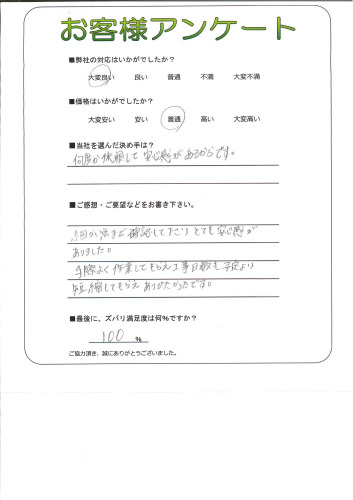 お客様アンケート
■弊社の対応はいかがでしたか?
大変良い 良い 普通 不満 大変不満
■価格はいかがでしたか?
大変安い 安い 普通 高い 大変高い
■当社を選んだ決め手は?
何度か依頼して安心感があるからです。
■ご感想・ご要望などをお書き下さい。
細かい点まで確認して下さりとても安心感が
ありました。
手際よく作業してもらえ工事日数も予定より
短縮してもらえありがたかったです。
■最後に、ズバリ満足度は何%ですか?
100 %
ご協力頂き、誠にありがとうございました。